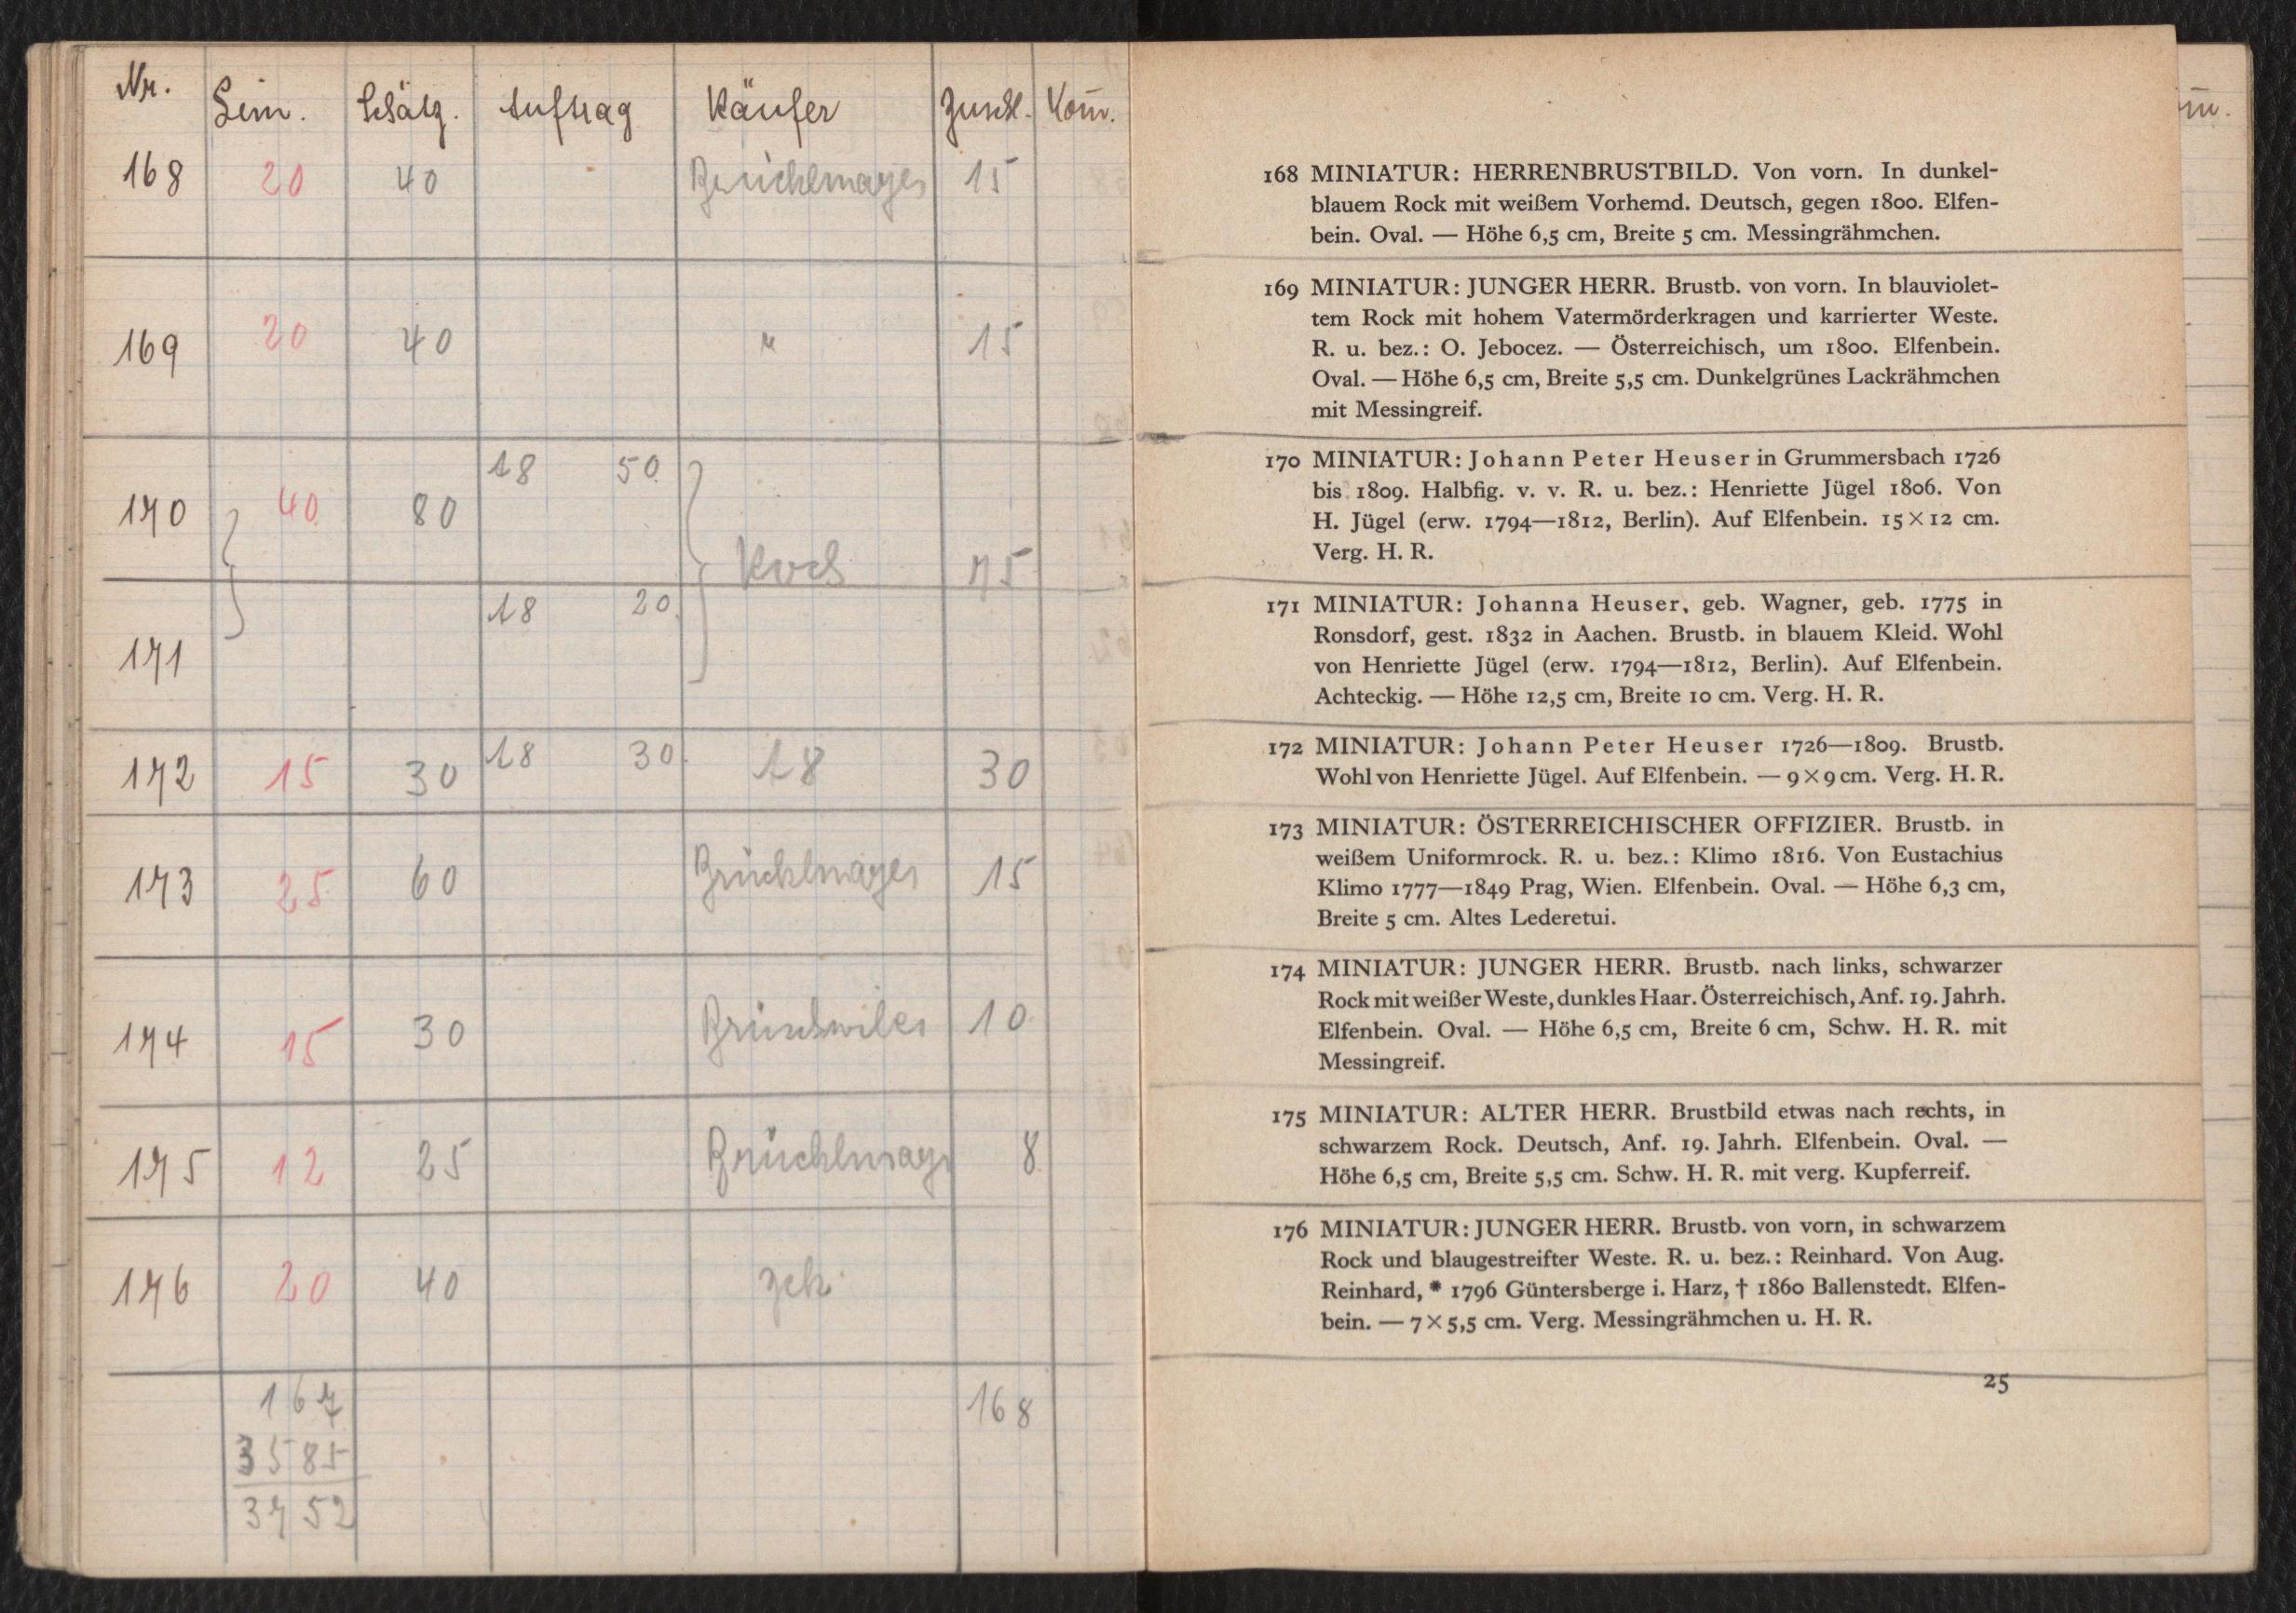 Nr. Lim. Schätz. Auftrag Käufer Zuschl. Kom̄.
168 20 40 Brüchlmayer 15
169 20 40 " 15
18 50
170 40 80
Koch 75
18 20
171
172 15 30 18 30 18 30
173 25 60 Brüchlmayer 15
174 15 30 10
175 12 25 Brüchlmayr 8
176 20 40 zck.
167 168
3585
3752
168 MINIATUR: HERRENBRUSTBILD. Von vorn. In dunkel-
blauem Rock mit weißem Vorhemd. Deutsch, gegen 1800. Elfen-
bein. Oval. — Höhe 6,5 cm, Breite 5 cm. Messingrähmchen.
169 MINIATUR: JUNGER HERR. Brustb. von vorn. In blauviolet-
tem Rock mit hohem Vatermörderkragen und karrierter Weste.
R. u. bez.: O. Jebocez. — Österreichisch, um 1800. Elfenbein.
Oval. — Höhe 6,5 cm, Breite 5,5 cm. Dunkelgrünes Lackrähmchen
mit Messingreif.
170 MINIATUR: Johann Peter Heuser in Grummersbach 1726
bis 1809. Halbfig. v. v. R. u. bez.: Henriette Jügel 1806. Von
H. Jügel (erw. 1794—1812, Berlin). Auf Elfenbein. 15×12 cm.
Verg. H. R.
171 MINIATUR: Johanna Heuser, geb. Wagner, geb. 1775 in
Ronsdorf, gest. 1832 in Aachen. Brustb. in blauem Kleid. Wohl
von Henriette Jügel (erw. 1794—1812, Berlin). Auf Elfenbein.
Achteckig. — Höhe 12,5 cm, Breite 10 cm. Verg. H. R.
172 MINIATUR: Johann Peter Heuser 1726—1809. Brustb.
Wohl von Henriette Jügel. Auf Elfenbein. — 9×9 cm. Verg. H. R.
173 MINIATUR: ÖSTERREICHISCHER OFFIZIER. Brustb. in
weißem Uniformrock. R. u. bez.: Klimo 1816. Von Eustachius
Klimo 1777—1849 Prag, Wien. Elfenbein. Oval. — Höhe 6,3 cm,
Breite 5 cm. Altes Lederetui.
174 MINIATUR: JUNGER HERR. Brustb. nach links, schwarzer
Rock mit weißer Weste, dunkles Haar. Österreichisch, Anf. 19. Jahrh.
Elfenbein. Oval. — Höhe 6,5 cm, Breite 6 cm, Schw. H. R. mit
Messingreif.
175 MINIATUR: ALTER HERR. Brustbild etwas nach rechts, in
schwarzem Rock. Deutsch, Anf. 19. Jahrh. Elfenbein. Oval. —
Höhe 6,5 cm, Breite 5,5 cm. Schw. H. R. mit verg. Kupferreif.
176 MINIATUR: JUNGER HERR. Brustb. von vorn, in schwarzem
Rock und blaugestreifter Weste. R. u. bez.: Reinhard. Von Aug.
Reinhard, * 1796 Güntersberge i. Harz, † 1860 Ballenstedt. Elfen-
bein. — 7×5,5 cm. Verg. Messingrähmchen u. H. R.
25